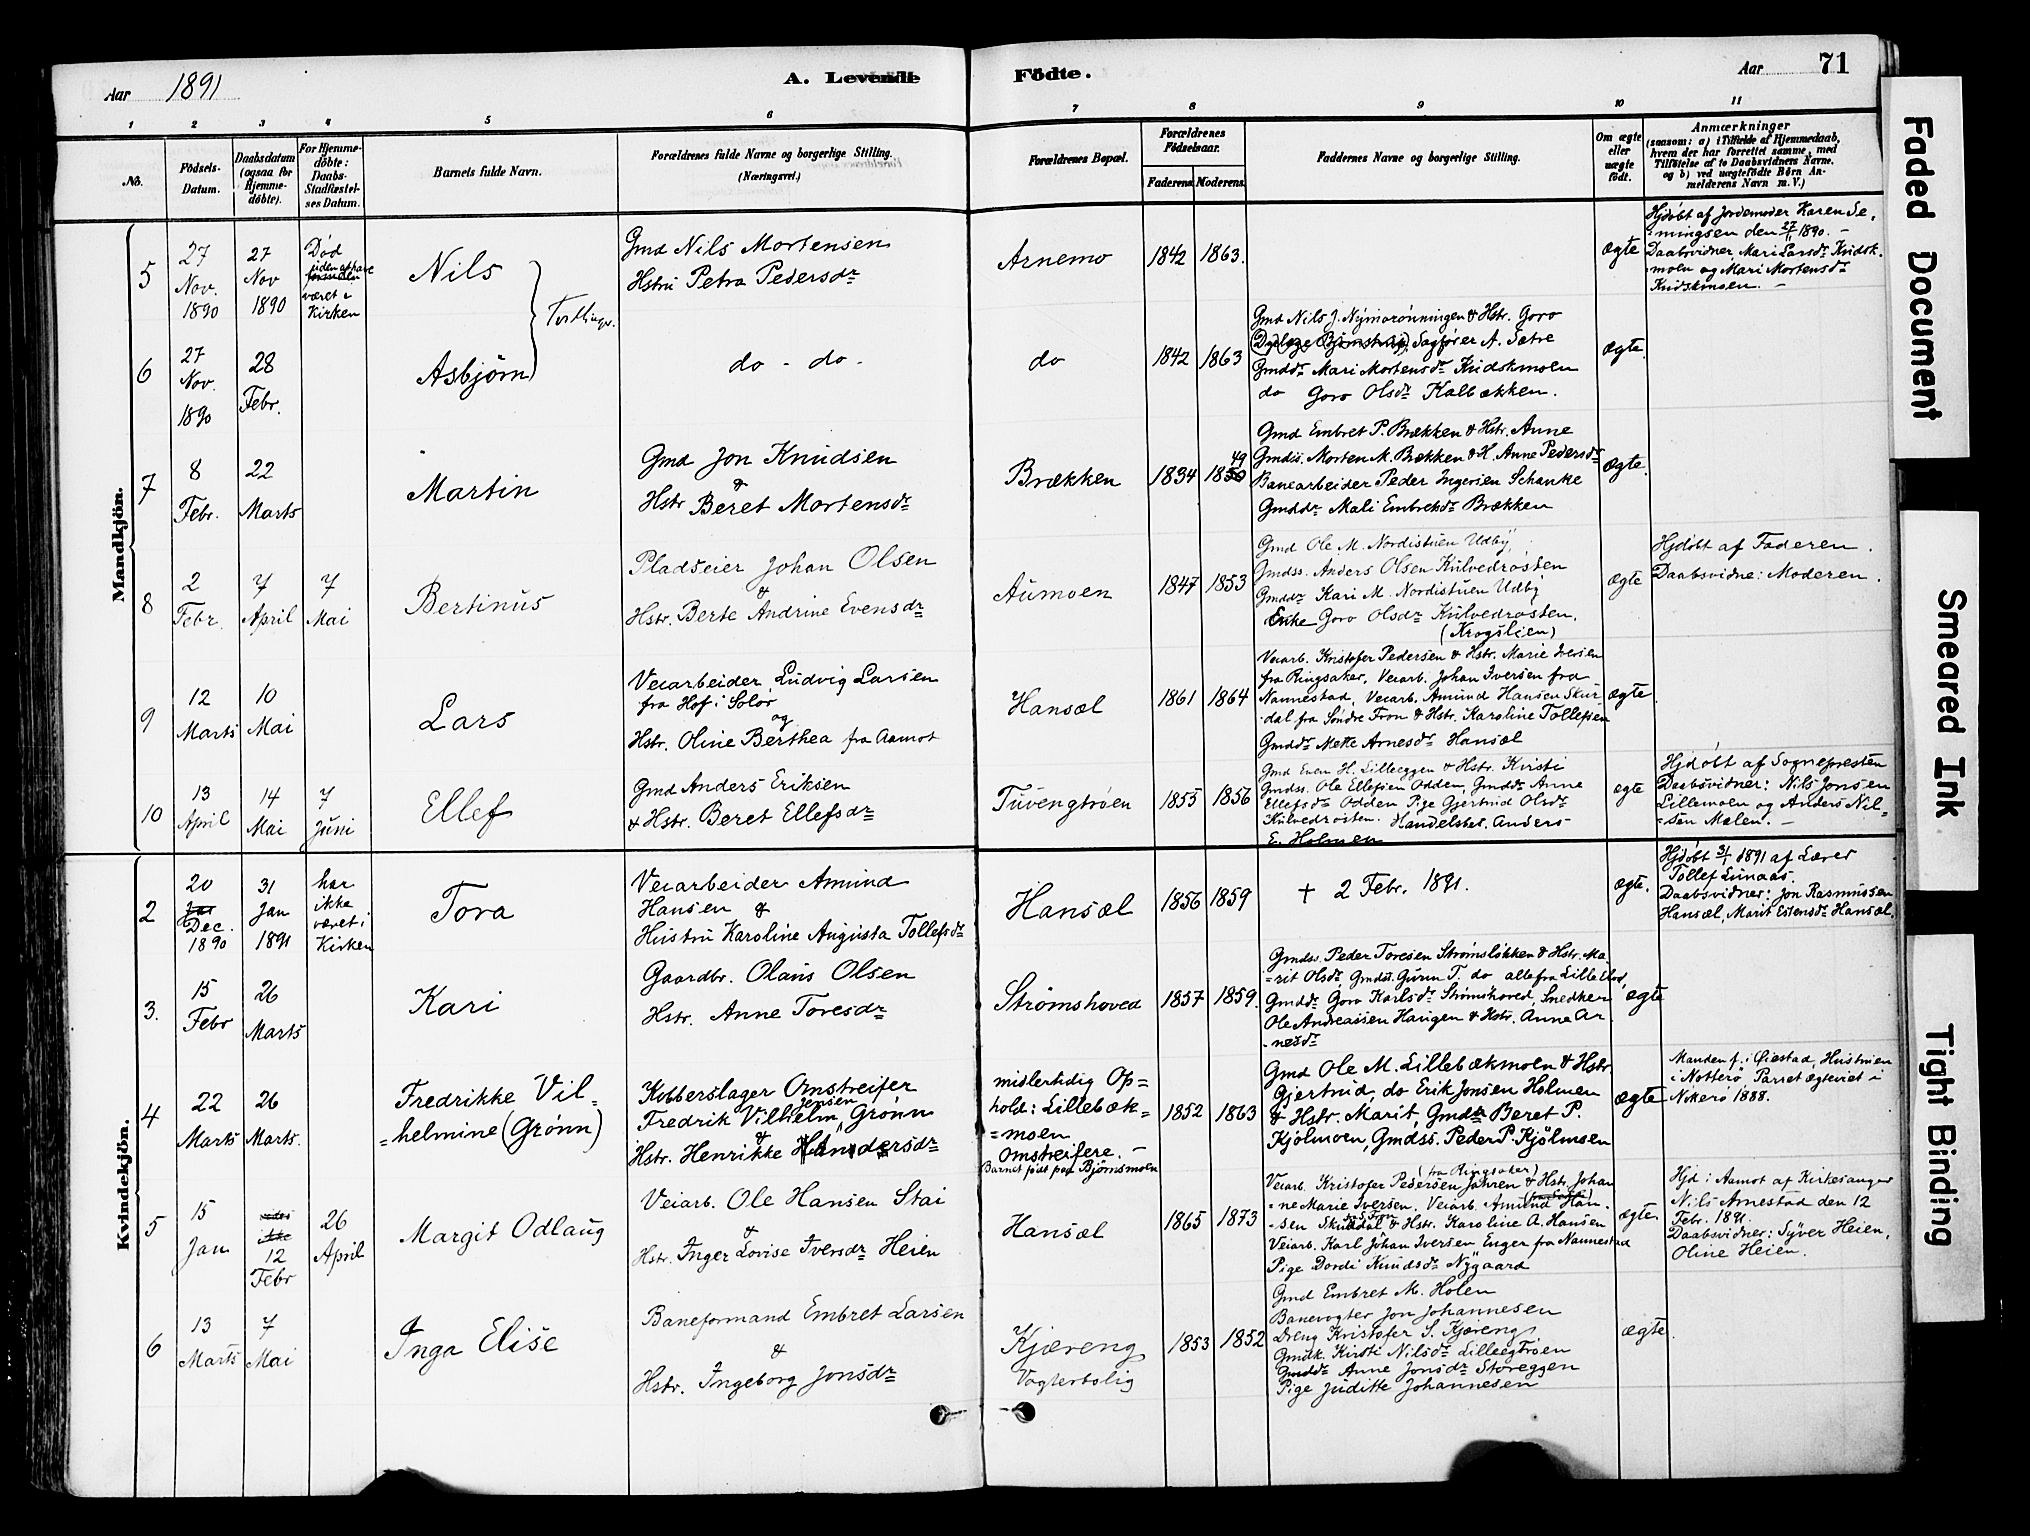 Aar 1891
A. Levende Fødte.
Aar 71
1 2 3 4 5 6 7 8 9 10 11
No.
Födsels-Datum.
Daabsdatum (ogsaa for Hjemmedøbte).
For Hjemmedøbte: Daabs-Stadfæstelses Datum.
Barnets fulde Navn.
Forældrenes fulde Navne og borgerlige Stilling.
(Næringsvei.)
Forældrenes Bopæl.
Forældrenes Födselsaar.
Faderens. Moderens.
Faddernes Navne og borgerlige Stilling.
Om ægte eller uægte födt.
Anmærkninger
(saasom: a) i Tilfælde af Hjemmedaab, hvem der har forrettet samme, med Tilføielse af to Daabsvidners Navne. og b) ved uægtefödte Börn Anmelderens Navn m. V.)
Mandkjön.
5
27 Nov. 1890
27 Nov 1890
Død uden at have været i Kirken
Nils
Tvillinger.
Gmd Nils Mortensen
Hstru Petra Pedersdr
Arnemo
1842 1863.
ægte
Hjdøbt af Jordemoder Karen Se-
mingsen den 27/11 1890. -
Daabsvidner Mari Larsdr Kndsk-
moen og Mari Mortensdr
Knidskmoen. -
6
27 Nov. 1890
28 Febr.
Asbjörn
do - do -
do
1842 1863
Gmd Nils J. Nymorønningen & Hstr. Goro
Sagfører A. Sætre
Gmddr Mari Mortensdr Knidskmoen
do Goro Olsdr Kalbækken.
ægte.
7
8 Febr.
22 Marts
Martin
Gmd Jon Knudsen
&
Hstr Beret Mortensdr
Brækken
1834 1850 49
Gmd Embret P. Brækken & Hstr. Anne
Gmdss. Morten M. Brækken & H. Anne Pedersdr
Banearbeider Peder Ingerien Schanke
Gmddr Mali Embretsdr Brækken
ægte.
8
2 Febr.
7 April
7 Mai
Bertinus
Pladseier Johan Olsen
&
Hstr. Berte Andrine Evensdr
Aumoen
1847 1853
Gmd Ole M. Nordistuen Udby,
Gmdss. Anders Olsen Kulvedrosten
Gmddr Kari M. Nordistuen Udby
Enke Goro Olsdr Kulvedrosten.
(Krogslien)
ægte
Hjdøbt af Faderen.
Daabsvidne: Moderen.
9
12 Marts
10 Mai
Lars
Veiarbeider Ludvig Larsen
fra Hof i Solør
og
Hstr. Oline Berthea fra Aamot
Hansæl
1861 1864
Veiarb. Kristofer Pedersen & Hstr. Marie Iversen
fra Ringsaker, Veiarb. Johan Iversen fra
Nannestad, Veiarb. Amund Hansen Skur-
dal fra Søndre Fron & Hstr. Karoline Tollefsen
Gmddr Mette Arnesdr Hansæl
ægte
10
13 April
14 Mai
7 Juni
Ellef
Gmd Anders Eriksen
& Hstr. Beret Ellefsdr
Tuvengtrøen
1855 1856
Gmd Even H. Lilleeggen & Hstr. Kirsti
Gmdss. Ole Ellefsen Odden, Gmddr Anne
Ellefsdr Odden Pige Gjertrud Olsdr
Kulvedrosten. Handelsbet. Anders
E. Holmen
ægte
Hjdøbt af Sognepresten
Daabsvidner: Nils Jonsen
Lillemoen og Anders Nil-
sen Mælen. -
Kvindekjön.
2
20 Jan Dec. 1890
31 Jan 1891
har ikke været i Kirken
Tora
Veiarbeider Amund
Hansen &
Hustru Karoline Augusta Tollefsdr
Hansæl
1856 1859
† 2 Febr. 1891.
ægte.
Hjdøbt 31/1 1891 af Lærer
Tollef Lunaas.
Daabsvidner: Jon Rasmussen
Hansæl, Marit Estensdr Hansæl.
3.
15 Febr
26 Marts
Kari
Gaardbr. Olaus Olsen
Hstr. Anne Toresdr
Strømshoved
1857 1859.
Gmdss. Peder Toresen Strømsløkken & Hstr. Ma-
rit Olsdr, Gmdss. Gurun T. do alle fra Lille Elvd.
Gmddr Goro Karlsdr Strømshoved, Snedker
Ole Andreassen Haugen & Hstr. Anne Ar-
nesdr
ægte
4
22 Marts
26 Marts.
Fredrikke Vil-
helmine (Grönn)
Kobberslager Omstreifer
Jensen
Fredrik Vilhelm Grönn
&
Hstr. Henrikke Andersdr
midlertidig Op-
hold: Lillebæk-
moen
Omstreifere. -
Barnet født paa Bjørnsmoen
1852 1863
Gmd Ole M. Lillebækmoen & Hstr
Gjertrud, do Erik Jonsen Holmen
& Hstr. Marit, Gmdr Beret P.
Kjølmoen, Gmdss. Peder P. Kjölmoen
ægte
Manden f. i Øiestad, Hustruen
i Notterø, Parret ægteviet i
1888.
5
15 Jan
12 Febr
26 April
Margit Odlaug
Veiarb. Ole Hansen Stai
&
Hstr. Inger Lovise Iversdr Heien
Hansæl
1865 1873
(fra Ringsaker)
Veiarb. Kristofer Pedersen Jahren & Hstr. Johan-
ne Marie Iversen. Veiarb. Amund Han-
sen Skurdal & Hstr. Karoline A. Hansen
Veiarb. Karl Johan Iversen Enger fra Nannestad
Pige Dordi Knudsdr Nygaard
ægte.
Hjd i Aamot af Kirkesanger
Nils Arnestad den 12
Febr. 1891.
Daabsvidner: Syver Heien,
Oline Heien.
6
13 Marts
7 Mai
Inga Elise
Baneformand Embret Larsen
&
Hstr. Ingeborg Jonsdr
Kjæreng
Vogterbolig
1853 1852
Gmd Embret M. Holen
Banevogter Jon Johannesen
Dreng Kristofer S. Kjæreng
Gmdk. Kirsti Nilsdr Lilleegtrøen
Gmddr Anne Jonsdr Storeggen
Pige Juditte Johannesen
ægte.
Faded Document
Smeared Ink
Tight Binding